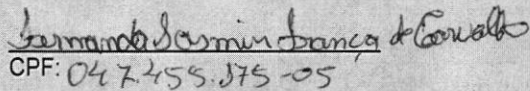 Fernanda Iasmin França de Carvalho
CPF: 047.455.175-05